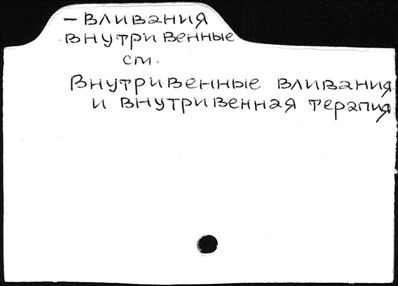 – вливания
внутривенные
см.
Внутривенные вливания
и внутривенная терапия